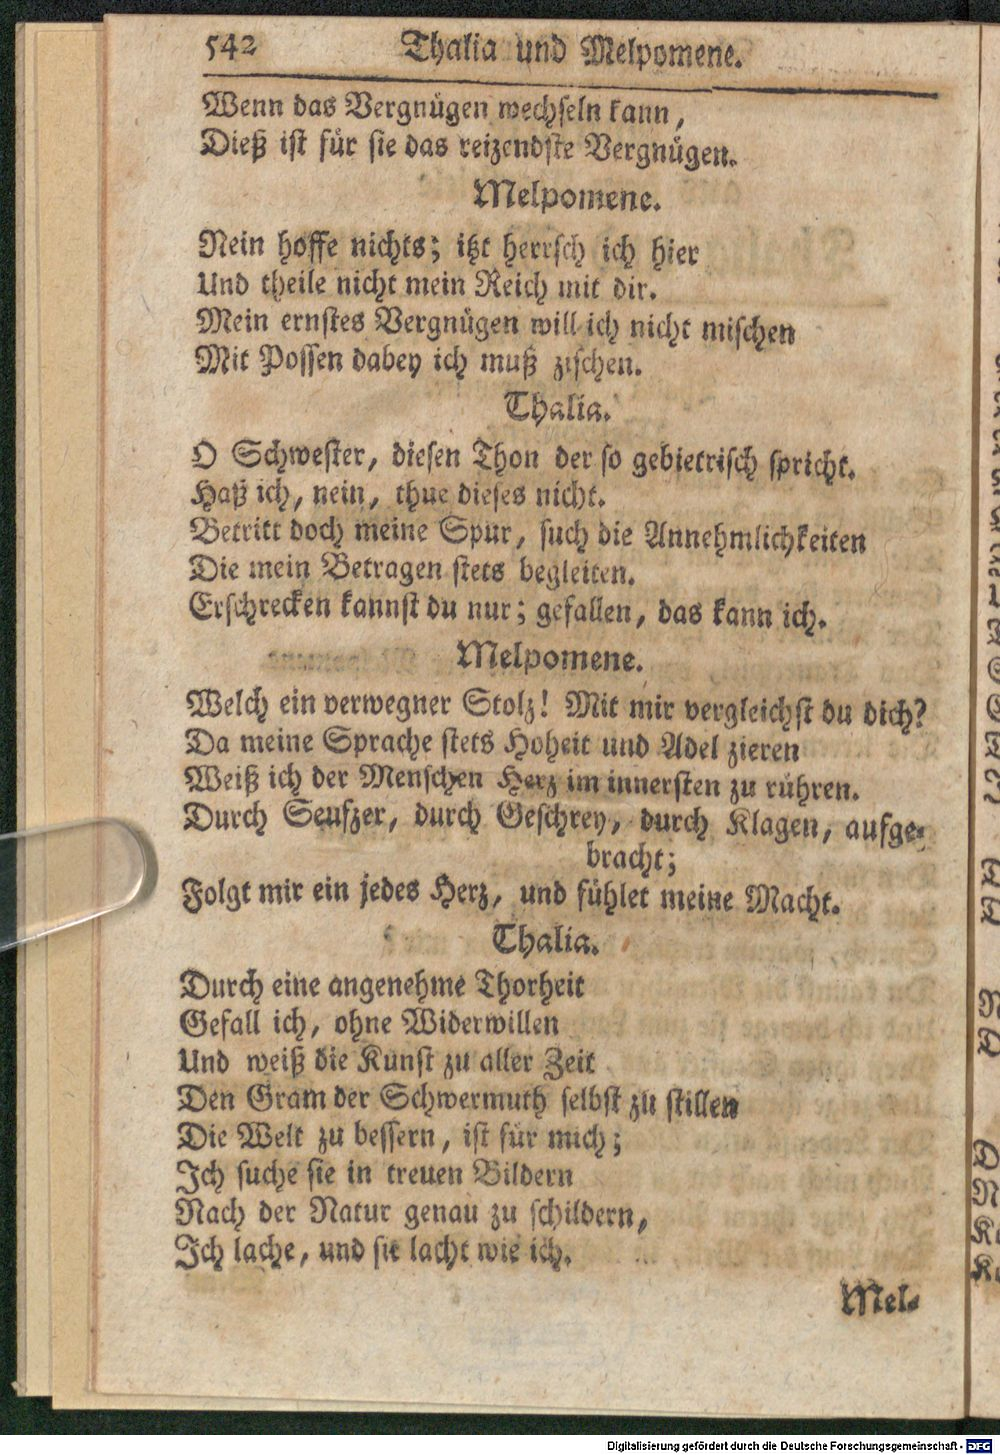 542 Thalia und Melpomene.
Wenn das Vergnügen wechseln kann,
Dieß ist für sie das reizendste Vergnügen.
Melpomene.
Nein hoffe nichts; itzt herrsch ich hier
Und theile nicht mein Reich mit dir.
Mein ernstes Vergnügen will ich nicht mischen
Mit Possen dabey ich muß zischen.
Thalia.
O Schwester, diesen Thon der so gebietrisch spricht.
Haß ich, nein, thue dieses nicht.
Betritt doch meine Spur, such die Annehmlichkeiten
Die mein Betragen stets begleiten.
Erschrecken kannst du nur; gefallen, das kann ich.
Melpomene.
Welch ein verwegner Stolz! Mit mir vergleichst du dich?
Da meine Sprache stets Hoheit und Adel zieren
Weiß ich der Menschen Herz im innersten zu rühren.
Durch Seufzer, durch Geschrey, durch Klagen, aufge-
bracht;
Folgt mir ein jedes Herz, und fühlet meine Macht.
Thalia.
Durch eine angenehme Thorheit
Gefall ich, ohne Widerwillen
Und weiß die Kunst zu aller Zeit
Den Gram der Schwermuth selbst zu stillen
Die Welt zu bessern, ist für mich;
Ich suche sie in treuen Bildern
Nach der Natur genau zu schildern,
Ich lache, und sie lacht wie ich.
Mel-
Digitalisierung gefördert durch die Deutsche Forschungsgemeinschaft - DFG